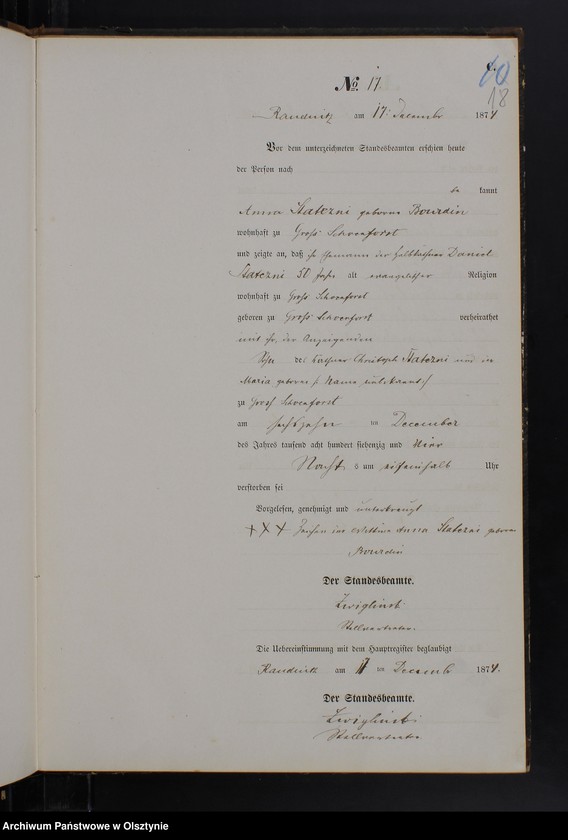 60
18
No. 17.
Raudnitz am 17. Decembr 1874
Vor dem unterzeichneten Standesbeamten erschien heute
der Person nach
be kannt
Anna Statezni geborene Bourdin
wohnhaft zu Groß Schoenforst
und zeigte an, daß ihr Ehemann der Halbkäthner Daniel
Statezni 50 Jahr alt evangelischer Religion
wohnhaft zu Groß Schoenforst
geboren zu Groß Schoenforst verheirathet
mit ihr, der Anzeigenden
Sohn des Käthner Christoph Statezni und der
Maria geborene (Name unbekannt)
zu Groß Schoenforst
am sechszehn ten December
des Jahres tausend acht hundert siebenzig und vier
Nacht s um Uhr
verstorben sei
Vorgelesen, genehmigt und unterkreuzt
+ X X Zeichen der Wittwe Anna Statezni geborene
Bourdin
Der Standesbeamte.
Zwiglinski
Stellvertreter.
Die Uebereinstimmung mit dem Hauptregister beglaubigt
Raudnitz am 17 ten Decembr 1874.
Der Standesbeamte.
Zwiglinski
Stellvertreter
Archiwum Państwowe w Olsztynie